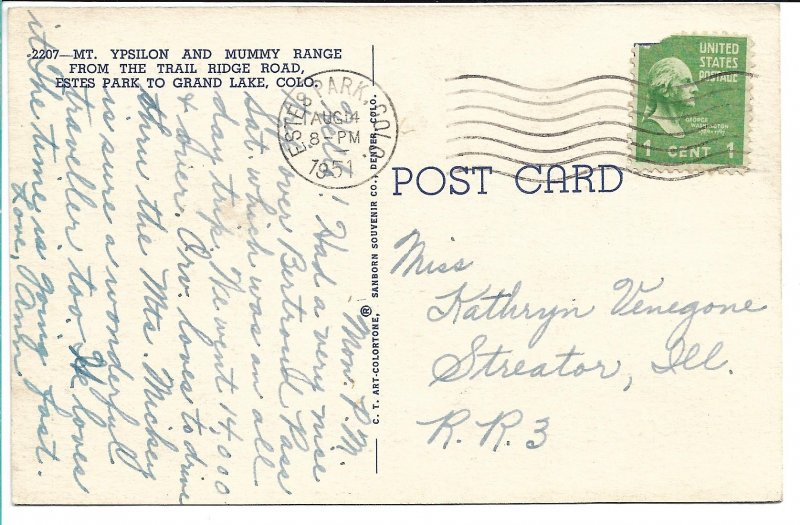 2207—MT. YPSILON AND MUMMY RANGE
FROM THE TRAIL RIDGE ROAD,
ESTES PARK TO GRAND LAKE, COLO.
Mon. P.M.
Had a very nice
over Bertroud Pass
Sat. which was an all
day trip. We went 14,000
& over. Orv. loves to drive
thru the Mts. Mickey
is a wonderful
traveller too. loves
it. The time is going fast.
Love,
C. T. ART-COLORTONE, ® SANBORN SOUVENIR CO., DENVER, COLO.
ESTES PARK, COLO.
AUG 14
8-PM
1951
UNITED
STATES
POSTAGE
GEORGE
WASHINGTON
1789-1797
1 CENT 1
POST CARD
Miss
Kathryn Venegone
Streator, Ill.
R.R.3